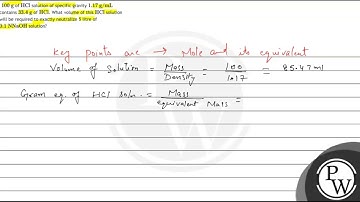 100 g of HCl solution of specific gravity 1.17 g/mL
contains 33.4 g of HCl. What volume of this HCl solution
will be required to exactly neutralize 5 litre of
0.1 NNaOH solution?
Key points are → Mole and its equivalent
Volume of Solution = Mass / Density = 100 / 1.17 = 85.47 ml
Gram eq. of HCl soln. = Mass / equivalent Mass =
PW